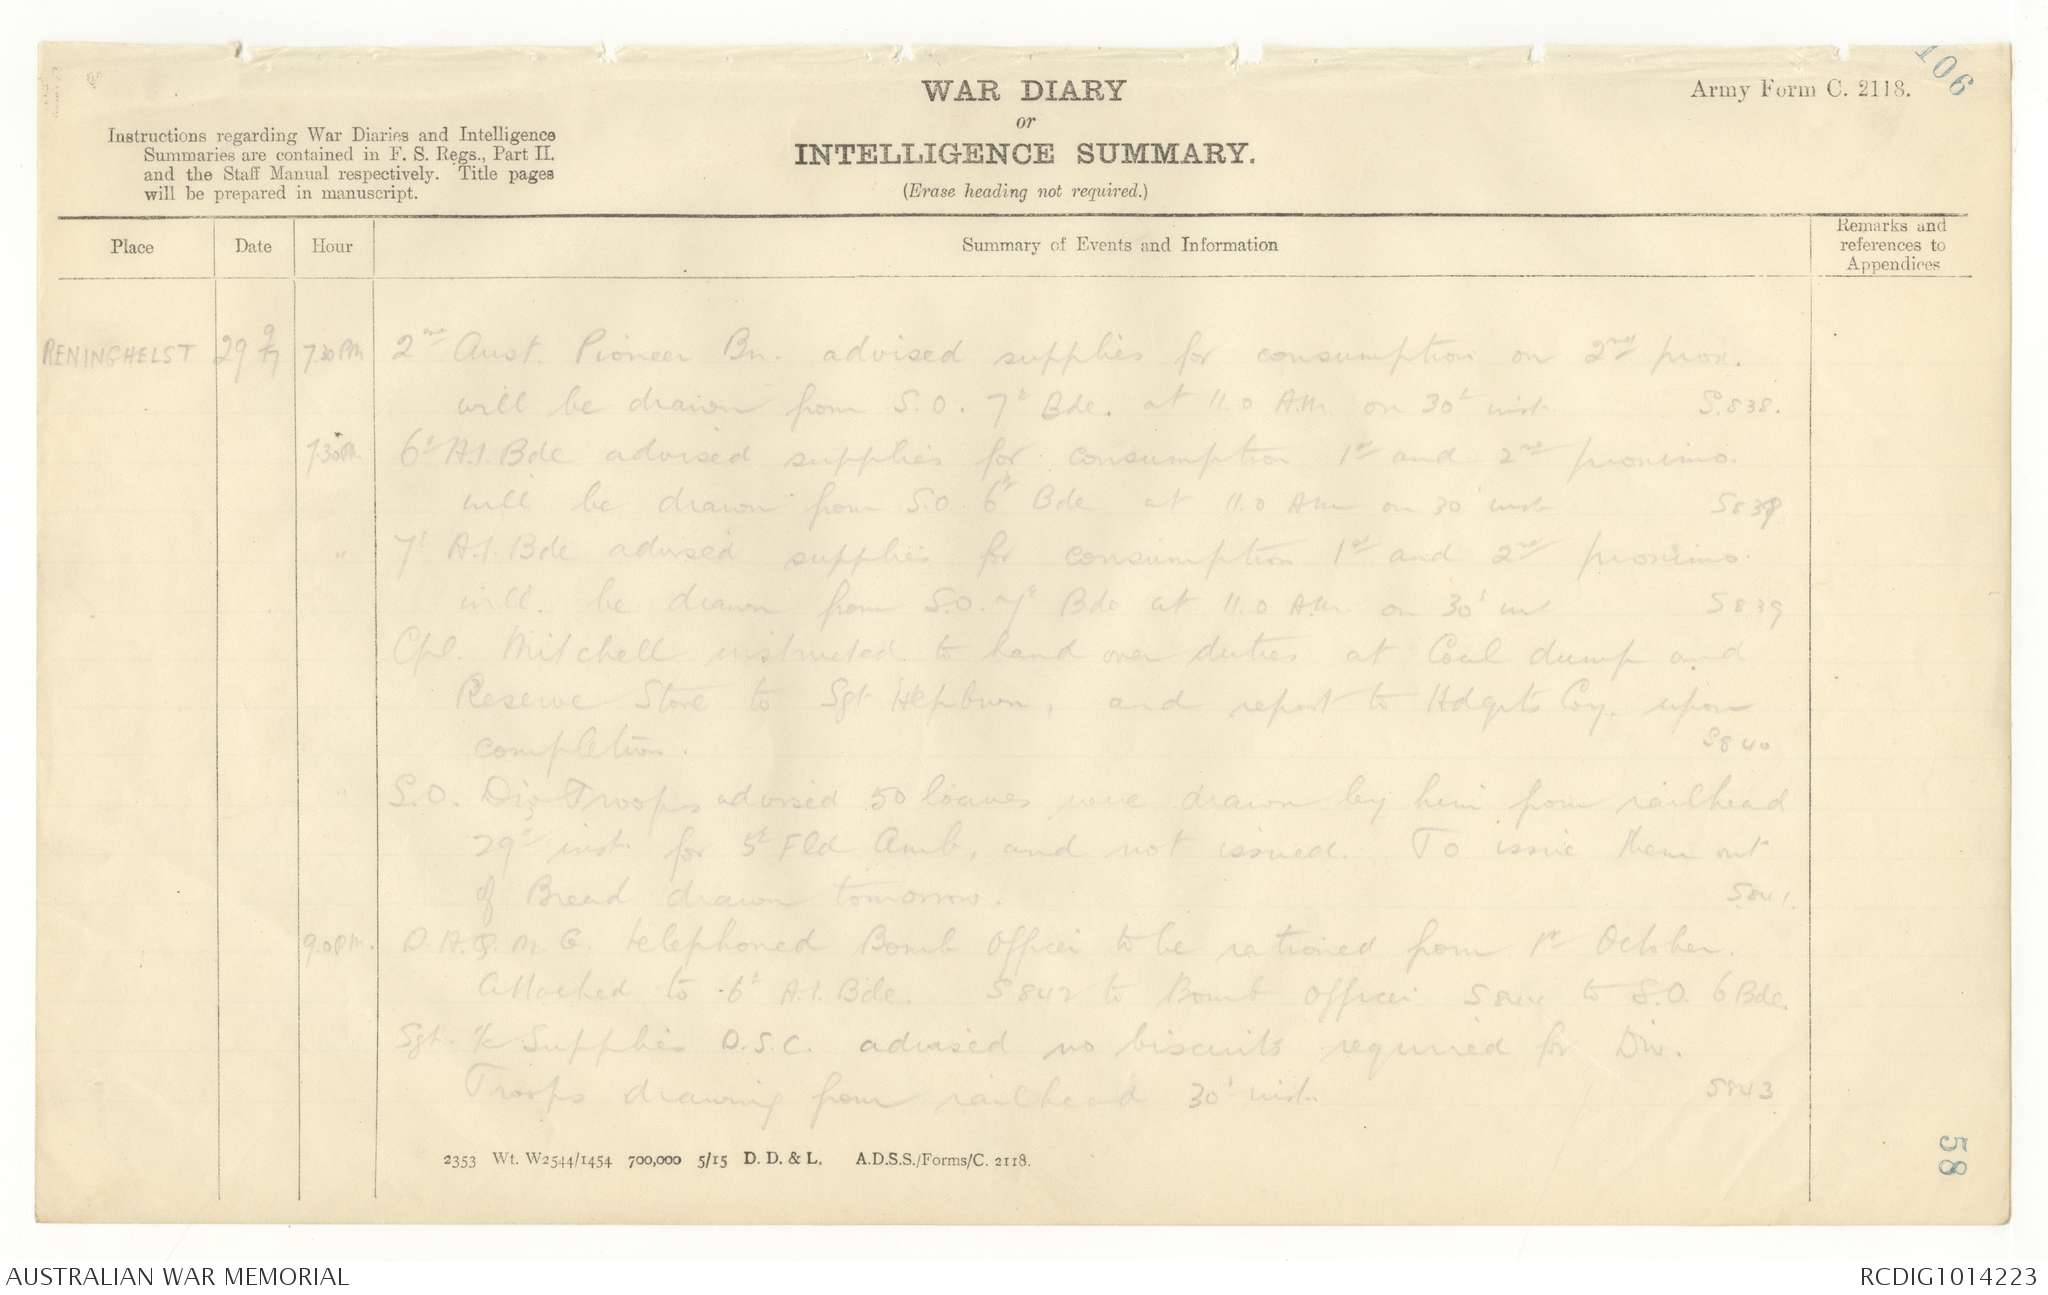 106
WAR DIARY
or
INTELLIGENCE SUMMARY.
(Erase heading not required.)
Army Form C. 2118.
Instructions regarding War Diaries and Intelligence
Summaries are contained in F. S. Regs., Part II.
and the Staff Manual respectively. Title pages
will be prepared in manuscript.
Place Date Hour Summary of Events and Information Remarks and references to Appendices
RENINGHELST 29 9/17 7.30PM 2nd Aust. Pioneer Bn. advised supplies for consumption on 2nd prox.
will be drawn from S.O. 7th Bde. at 11.0 A.M. on 30th inst. S.838.
7.30PM. 6th A.I. Bde advised supplies for consumption 1st and 2nd proximo.
will be drawn from S.O. 6th Bde at 11.0 AM on 30th inst S839
" 7th A.I. Bde advised supplies for consumption 1st and 2nd proximo.
will. be drawn from S.O. 7th Bde at 11.0 A.M. on 30th inst S839
Cpl. Mitchell instructed to hand over duties at Coal dump and
Reserve Store to Sgt Hepburn, and report to Hdqrts Coy. upon
completion. S840
" S.O. Div Troops advised 50 loaves were drawn by him from railhead
29th inst. for 5th Fld Amb, and not issued. To issue them out
of Bread drawn tomorrow. S841.
9.0PM. D.A.Q.M.G. telephoned Bomb Officer to be rationed from 1st October.
Attached to 6th A.I. Bde. S842 to Bomb Officer S844 to S.O. 6 Bde.
Sgt. i/c Supplies D.S.C. advised no biscuits required for Div.
Troops drawing from railhead 30th inst. S843
2353 Wt. W2544/1454 700,000 5/15 D. D. & L. A.D.S.S./Forms/C. 2118.
58
AUSTRALIAN WAR MEMORIAL
RCDIG1014223